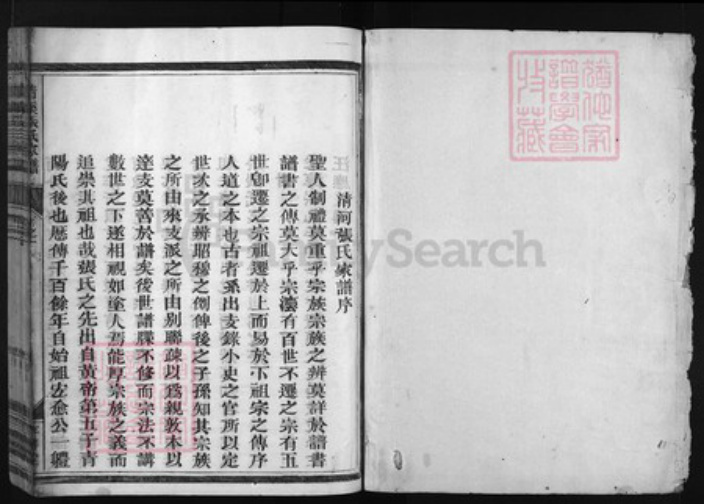 清河張氏家譜序
聖人制禮莫重乎宗族宗族之辨莫詳於譜書
譜書之傳莫大乎宗灋有百世不遷之宗有五
世卽遷之宗祖遷於上而易於下祖宗之傳序
人道之本也古者系出支錄小史之官所以定
世次之承辨昭穆之例俾後之子孫知其宗族
之所由來支派之所由别聯疎以爲親敦本以
逹支莫善於譜矣後世譜牒不修而宗法不講
數世之下遂相視如塗人焉能厚宗族之義而
追崇其祖也哉張氏之先出自黃帝第五子青
陽氏後也歷傳千百餘年自始祖左愈公一軆
MySearch